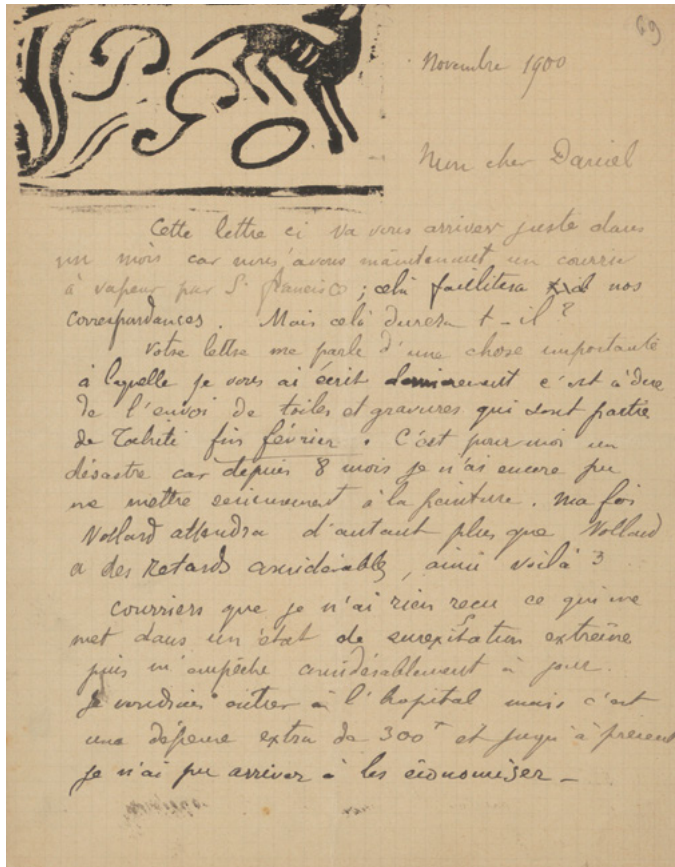 69
Novembre 1900
Mon cher Daniel
Cette lettre ci va vous arriver juste dans
un mois car nous avons maintenant un courrier
à vapeur par St francisco ; celà facilitera nos
correspondances. Mais celà durera t-il ?
Votre lettre me parle d'une chose importante
à laquelle je vous ai écrit dernierement c'est à dire
de l'envoi de toiles et gravures qui sont partie
de Tahiti fin février. C'est pour moi un
désastre car depuis 8 mois je n'ai encore pu
me mettre serieusement à la peinture. Ma foi
Vollard attendra d'autant plus que Vollard
a des retards considérables, ainsi voilà 3
courriers que je n'ai rien reçu ce qui me
met dans un état de surexitation extreme
puis m'empêche considérablement à
je voudrais entrer à l'hopital mais c'est
une dépense extra de 300f et jusqu'à présent
je n'ai pu arriver à les économiser _